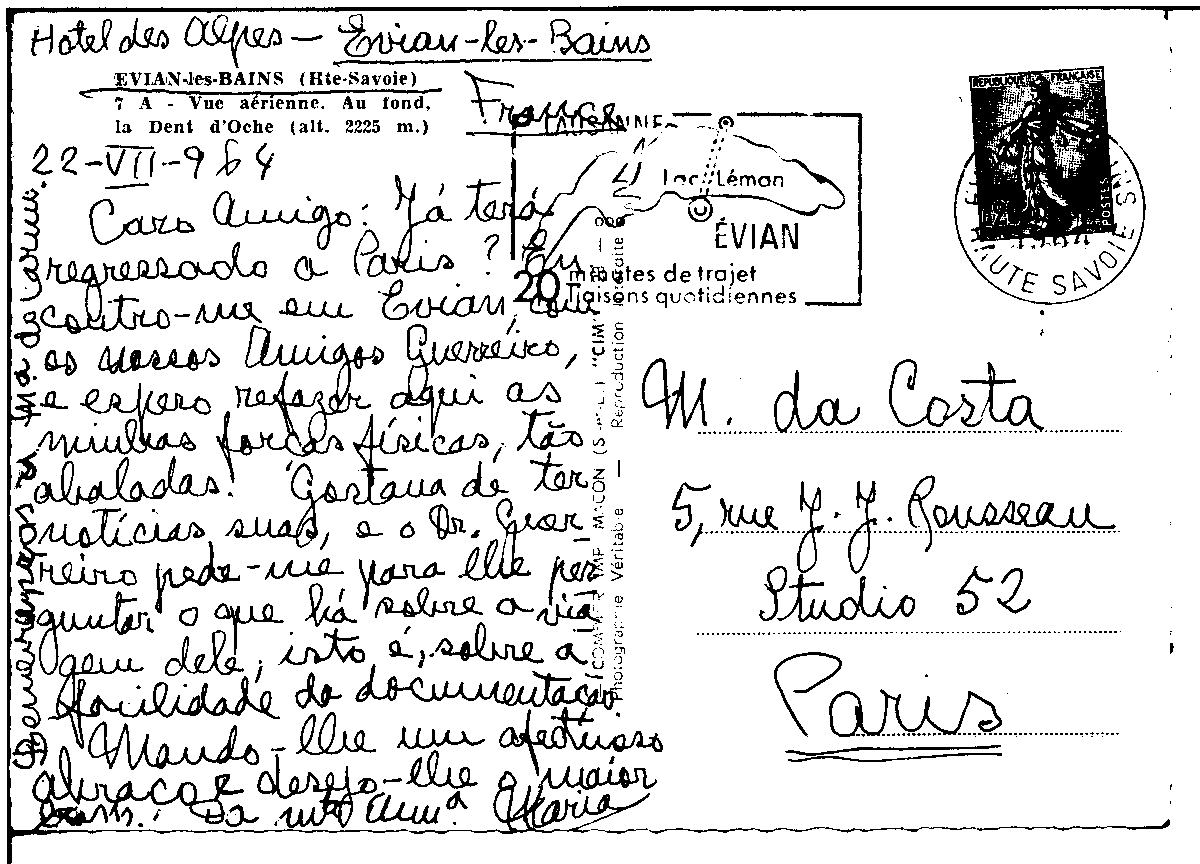 Hotel des Alpes — Evian-les-Bains
EVIAN-les-BAINS (Hte-Savoie)
7 A - Vue aérienne. Au fond,
la Dent d'Oche (alt. 2225 m.)
France
22-VII-964
Caro Amigo: Já terá
regressado a Paris? En
contro-me em Evian, com
os nossos Amigos Guerreiro,
e espero refazer aqui as
minhas forças físicas, tão
abaladas! Gostava de ter
notícias suas, e o Dr. Guer
reiro pede-me para lhe per
guntar o que há sobre a via
gem dele, isto é, sobre a
facilidade da documentação.
Mando-lhe um afectuoso
abraço e desejo-lhe o maior
bem. Da mto Ama. Maria
LAUSANNE
Lac Léman
ÉVIAN
20 minutes de trajet
liaisons quotidiennes
REPUBLIQUE FRANÇAISE
POSTES
HAUTE SAVOIE
IMP. MACON
Photographie Véritable — Reproduction interdite
M. da Costa
5, rue J. J. Rousseau
Studio 52
Paris